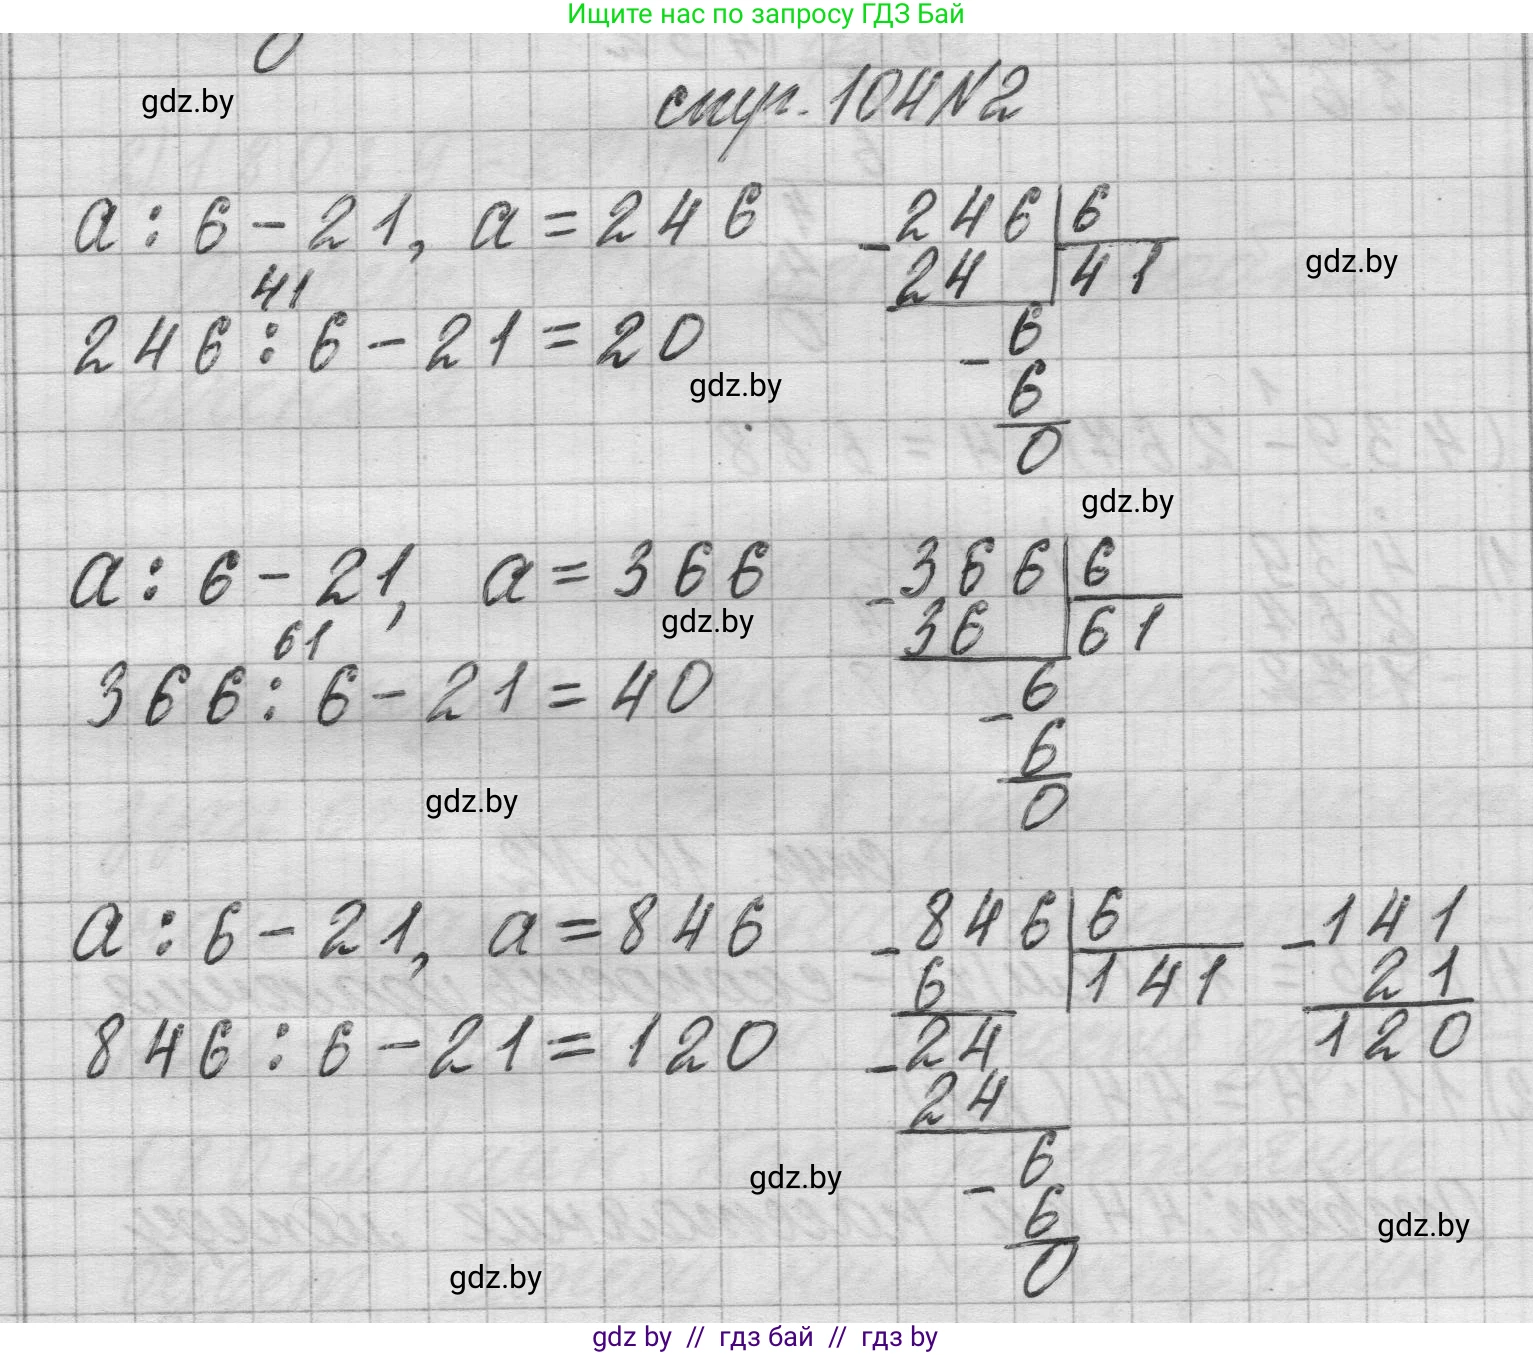 Ищите нас по запросу ГДЗ Бай
gdz.by
стр. 104 N2
a : 6 - 21, a = 246
41
246 : 6 - 21 = 20
- 246 | 6
24 41
- 6
6
0
gdz.by
gdz.by
gdz.by
a : 6 - 21, a = 366
61
366 : 6 - 21 = 40
- 366 | 6
36 61
- 6
6
0
gdz.by
gdz.by
a : 6 - 21, a = 846
846 : 6 - 21 = 120
- 846 | 6
6 141
- 24
24
- 6
6
0
- 141
21
120
gdz.by
gdz.by
gdz.by
gdz by // гдз бай // гдз by